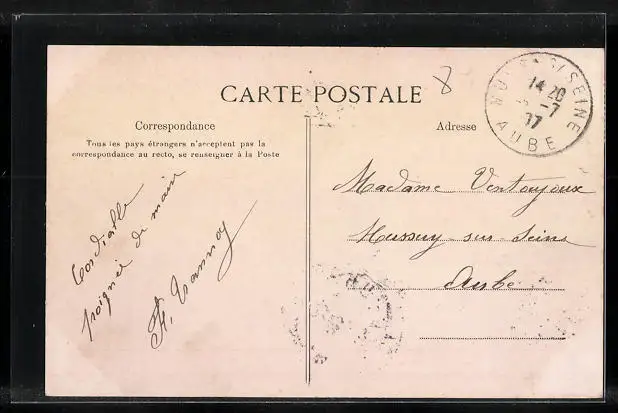 CARTE POSTALE
Correspondance
Tous les pays étrangers n'acceptent pas la
correspondance au recto, se renseigner à la Poste
Cordiale
poignée de main
Adresse
8
SEINE
14 20
-7
07
AUBE
Madame Ventoujoux
Mussuy-sur-Seine
Aube